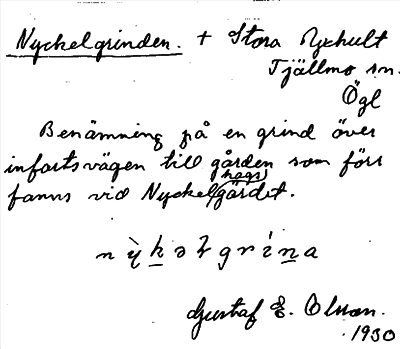 Nyckelgrinden. + Stora Ryckult
Tjällmo sn.
Ögl
Benämning på en grind över
infartsvägen till gården som förr
fanns vid Nyckel(hags)gärdet.
nỳk̲əƚgrín̲a
Gustaf E. Olsson.
1930